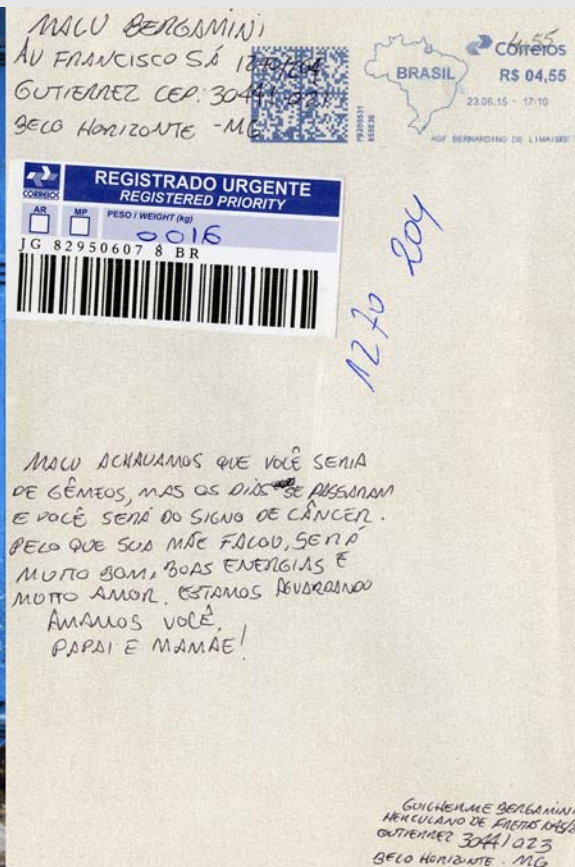 MALU BERGAMINI
AV FRANCISCO SÁ 1270/204
GUTIERREZ CEP: 30441 021
BELO HORIZONTE - MG
4,55
Correios
BRASIL
R$ 04,55
23.06.15 - 17:10
AGF BERNARDINO DE LIMA/BHE
CORREIOS
REGISTRADO URGENTE
REGISTERED PRIORITY
AR
MP
PESO / WEIGHT (kg)
0016
JG 82950607 8 BR
1270 204
MALU ACHAVAMOS QUE VOCÊ SERIA
DE GÊMEOS, MAS OS DIAS SE PASSARAM
E VOCÊ SERÁ DO SIGNO DE CÂNCER.
PELO QUE SUA MÃE FALOU, SERÁ
MUITO BOM, BOAS ENERGIAS E
MUITO AMOR. ESTAMOS AGUARDANDO
AMAMOS VOCÊ,
PAPAI E MAMÃE!
GUILHERME BERGAMINI
HERCULANO DE FREITAS
GUTIERREZ 30441 023
BELO HORIZONTE - MG